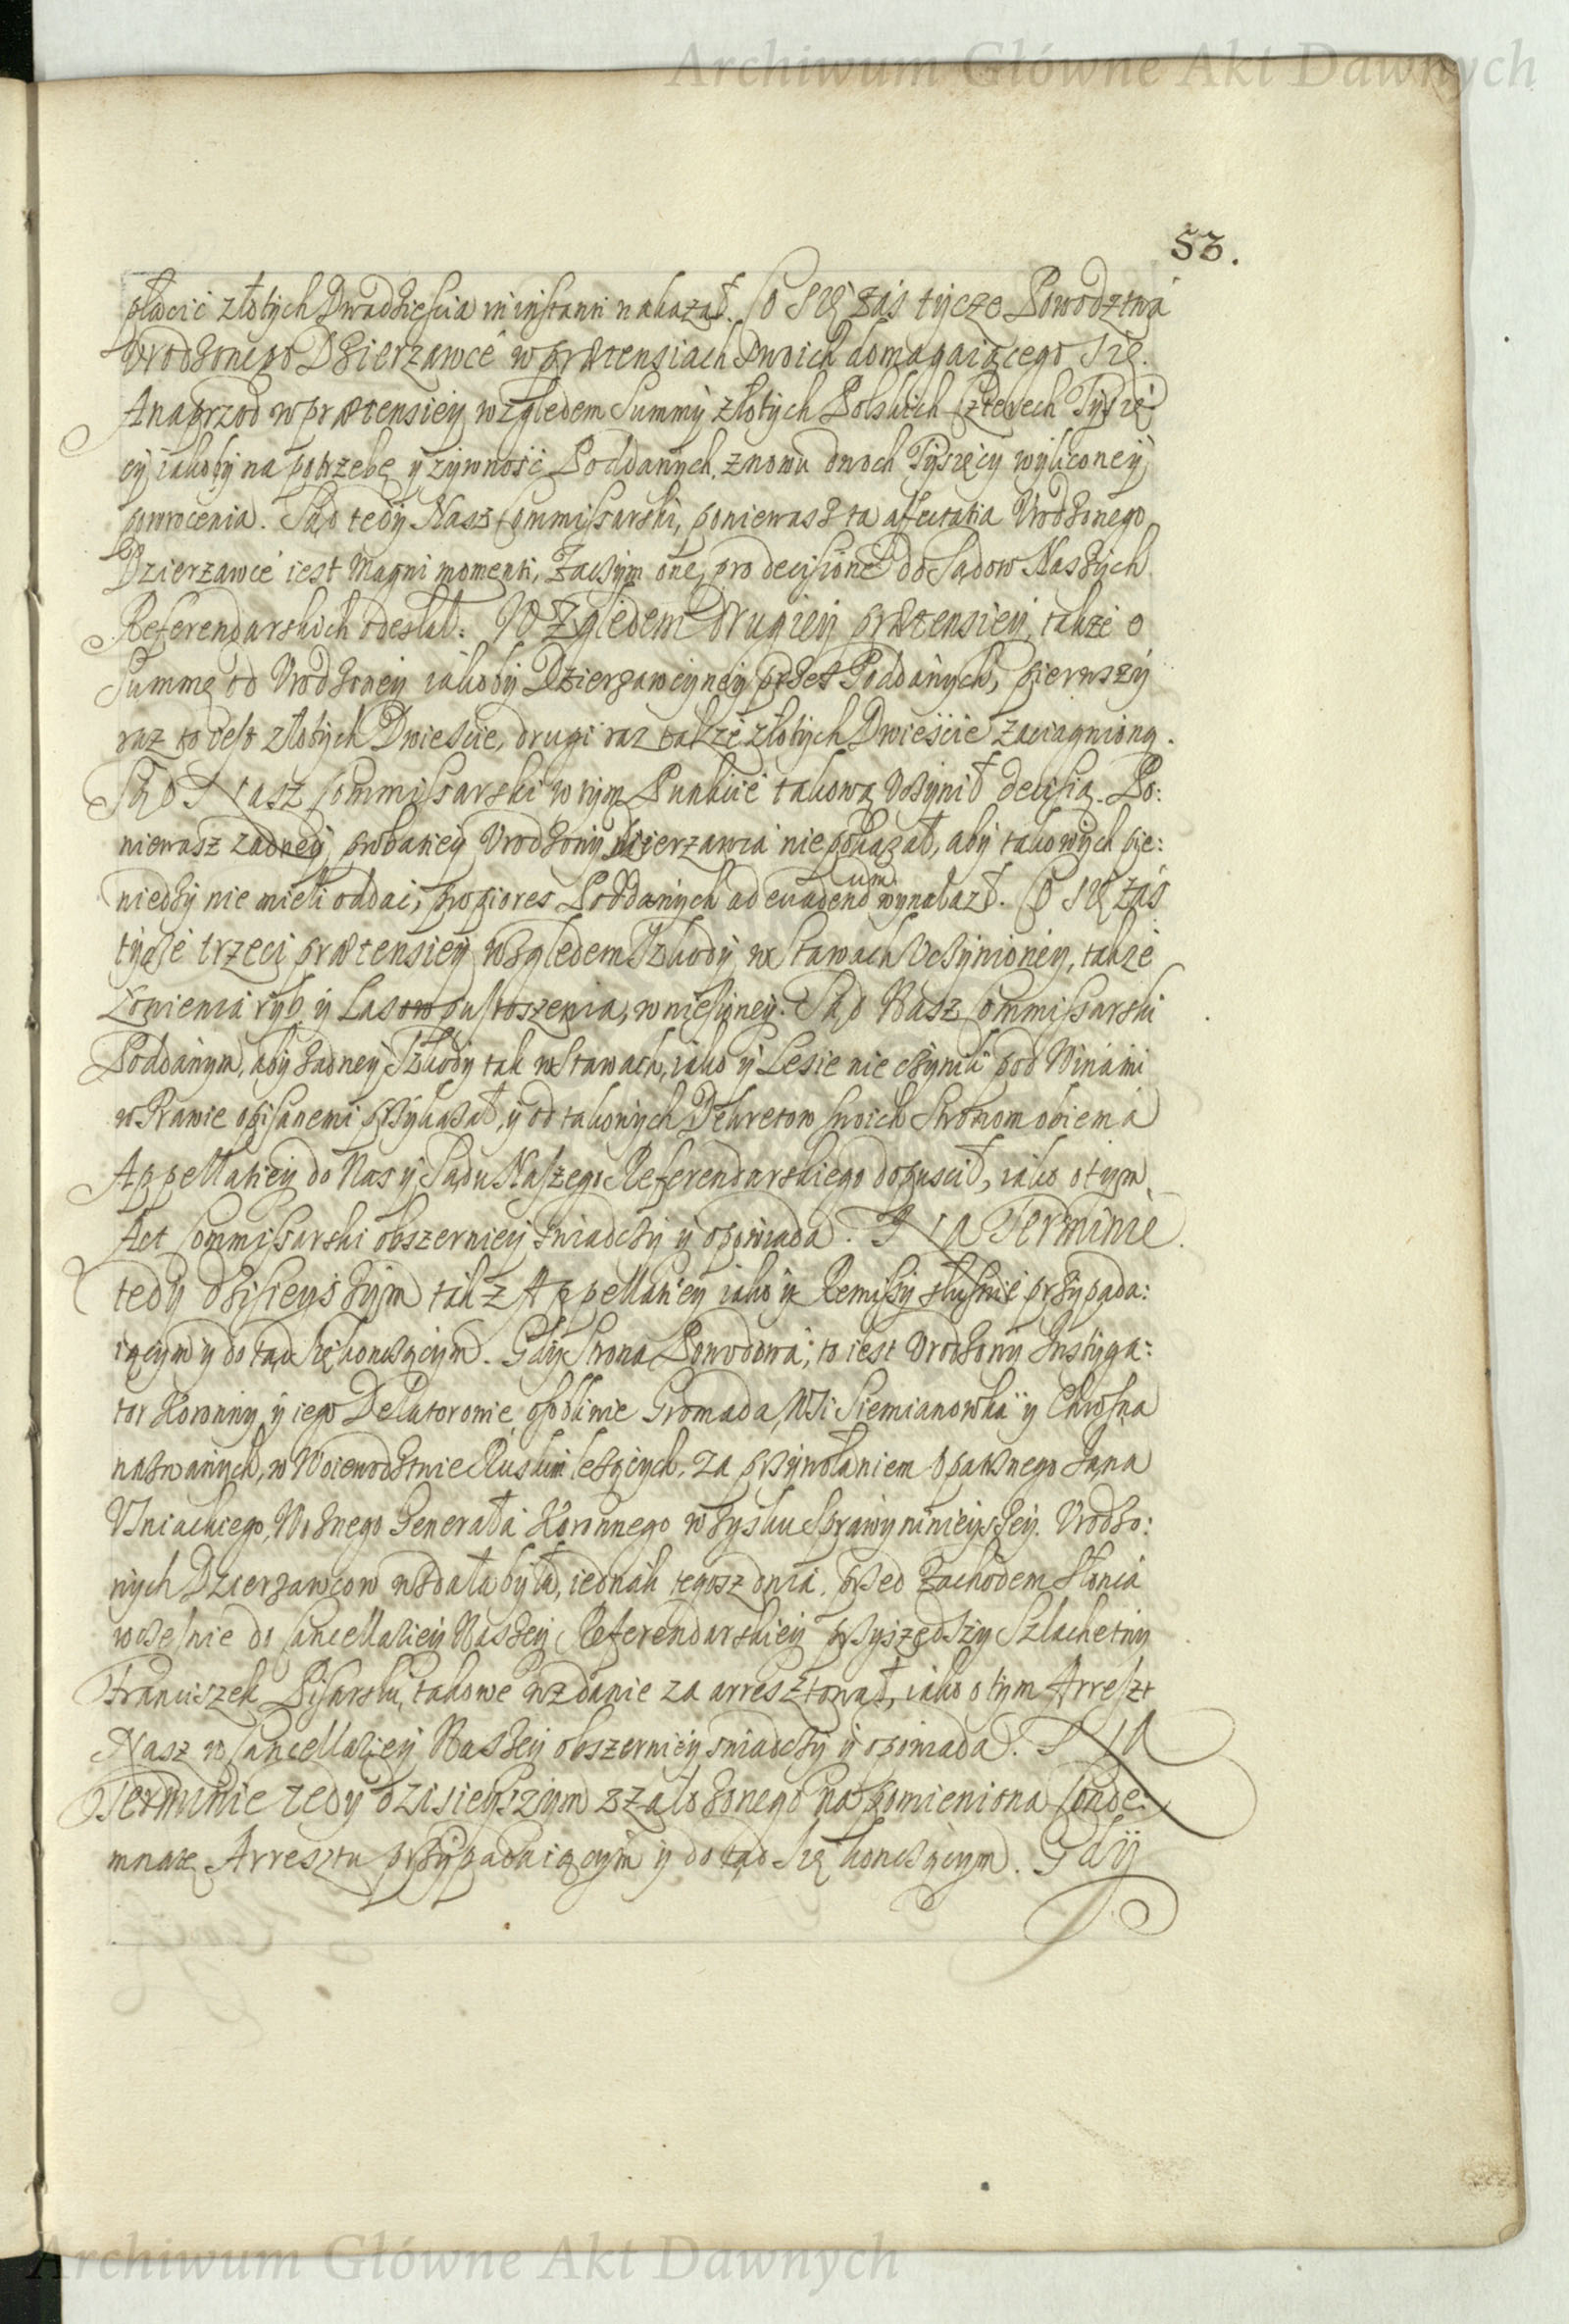 Archiwum Główne Akt Dawnych
53.
płacić złotych Dwadzieścia in instanti nakazał. Co Się zaś tycze Powodztwa
Vrodzonego Dzierzawce w prætensiach swoich domagaiącego Się.
A naprzod w prætensiey względem Summy złotych Polskich Czterech Tysię
cy iakoby na potrzebę y zywność Poddanych, znowu dwoch Tysięcy wyliczoney
powrocenia. Sąd tedy Nasz Commissarski, poniewasz ta affectatia Vrodzonego
Dzierzawce iest Magni momenti, Zaczym onę pro decisione do Sądow Naszych
Referendarskich odesłał. Względem drugiey prætensiey, także o
Summę od Vrodzoney iakoby Dzierzawcyney przez Poddanych, pierwszy
raz to iest złotych Dwiescie, drugi raz także złotych Dwieście zaciągnioną.
Sąd Nasz Commissarski w tym Punkcie takową vczynił decisią. Po:
niewasz zadney probaticy Vrodzony Dzierzawca nie pokazał, aby takowych pie:
niedzy nie mieli oddać, propiores Poddanych ad evadendum wynalazł. Co Się zaś
tycze trzeci prætensiey względem Szkody w Stawach Vczynioney, także
Łowienia ryb y Lasow pustoszenia, wniesyney. Sąd Nasz Commissarski
Poddanym, aby zadney Szkody tak w Stawach, iako y Lesie nie czynili pod Winami
w Prawie opisanemi przykazał, y od takowych Dekretow swoich Stronom obiema
Appellatiey do Nas y Sądu Naszego Referendarskiego dopuscił, iako o tym
Act Commissarski obszerniey swiadczy y opowiada. Na Terminie
tedy dzisieyszym tak z Appellatiey iako y Remissy słusnie przypada:
iącym y do tąd Się konczącym. Gdy Strona Powodowa, to iest Vrodzony Instyga:
tor Koronny y iego Delatorowie osobliwie Gromada Wsi Siemianowka y Chrosna
nazwanych, w Woiewodztwie Ruskim leżących, za przywołaniem Opatrznego Jana
Vniackiego, Woznego Generała Koronnego w zysku Sprawy ninieyszey. Vrodzo:
nych Dzierzawcow wzdała była, iednak tegosz dnia, przed Zachodem Słońca
wczesnie do Cancellariey Naszey Referendarskiey przyszedszy Szlachetny
Franciszek Pisarski, takowe wzdanie za arresztował, iako o tym Arreszt
Nasz w Cancellariey Naszey obszerniey swiadczy y opowiada. Na
Terminie tedy dzisieyszym z założonego na pomieniona Conde:
mnatę Arresztu przypadaiącym y do tąd Się konczącym. Gdy
Archiwum Główne Akt Dawnych